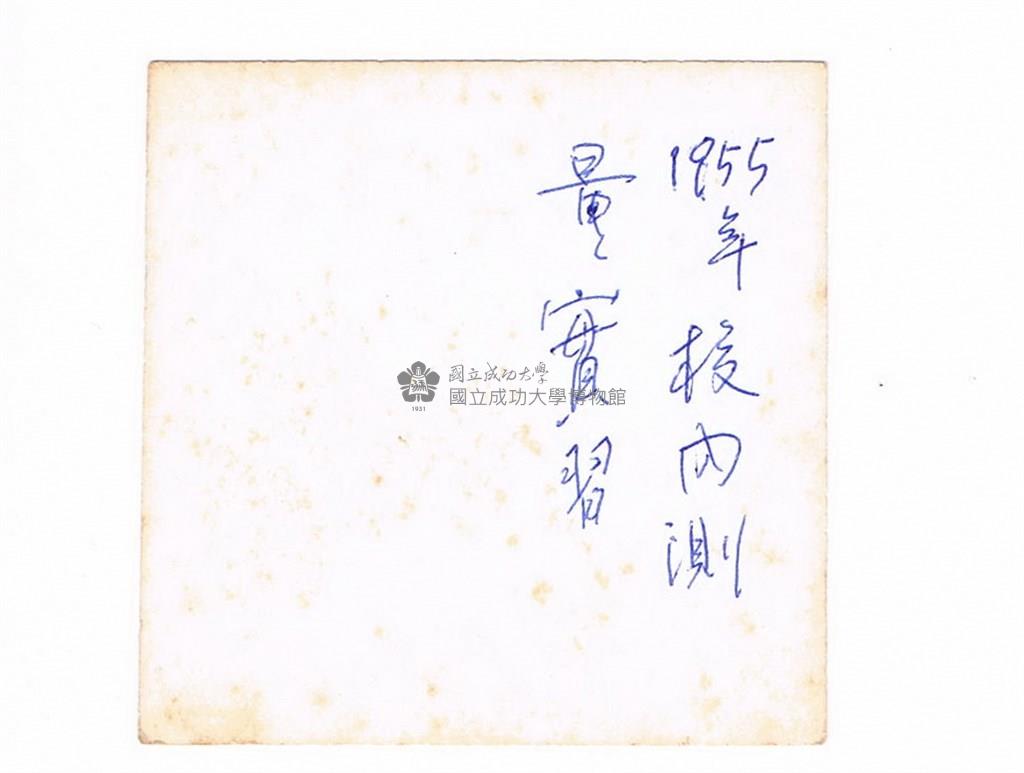 1955年校內測
量實習
國立成功大學
國立成功大學博物館
1931